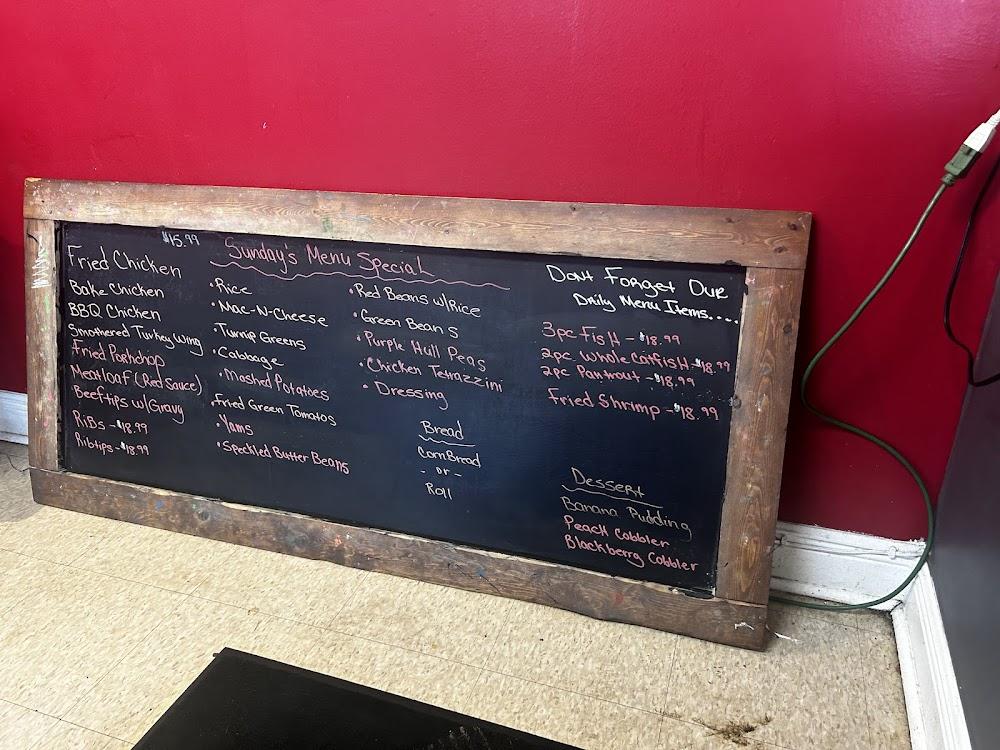 $15.99
Sunday's Menu Special
Fried Chicken
Bake Chicken
BBQ Chicken
Smothered Turkey Wing
Fried Porkchop
Meatloaf (Red Sauce)
Beeftips w/Gravy
Ribs - $18.99
Ribtips - $18.99
• Rice
• Mac-N-Cheese
• Turnip Greens
• Cabbage
• Mashed Potatoes
• Fried Green Tomatos
• Yams
• Speckled Butter Beans
• Red Beans w/Rice
• Green Beans
• Purple Hull Peas
• Chicken Tetrazzini
• Dressing
Bread
CornBread
- or -
Roll
Dont Forget Our
Daily Menu Items....
3pc Fish - $18.99
2pc Whole Catfish - $18.99
2pc Pantrout - $18.99
Fried Shrimp - $18.99
Dessert
Banana Pudding
Peach Cobbler
Blackberry Cobbler